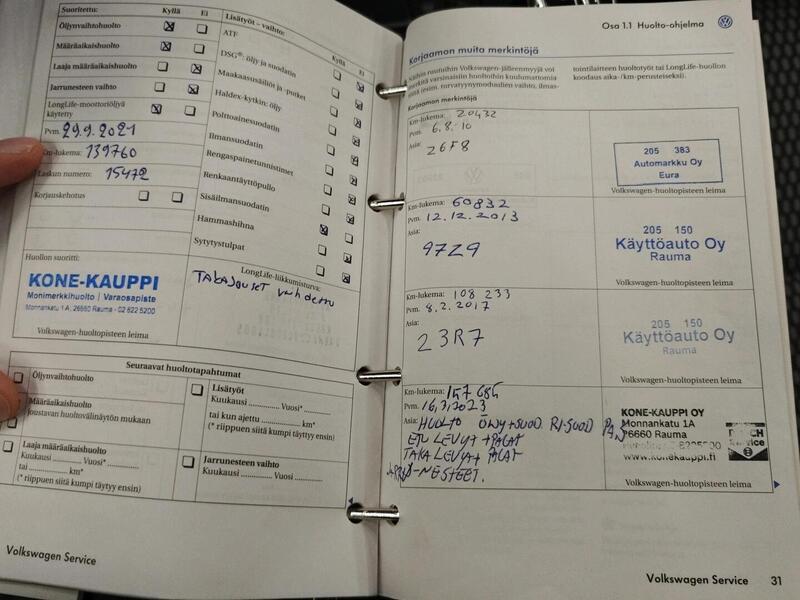 Suoritettu: Kyllä Ei
Öljynvaihtohuolto
Määräaikaishuolto
Laaja määräaikaishuolto
Jarrunesteen vaihto
LongLife-moottoriöljyä
käytetty
Pvm. 29.9.2021
Km-lukema: 139760
Laskun numero: 15472
Korjauskehotus
Huollon suoritti:
KONE-KAUPPI
Monimerkkihuolto | Varaosapiste
Monnankatu 1 A, 26660 Rauma - 02 822 5200
Volkswagen-huoltopisteen leima
Lisätyöt – vaihto:
Kyllä Ei
ATF
DSG®: öljy ja suodatin
Maakaasusäiliöt ja -putket
Haldex-kytkin: öljy
Polttoainesuodatin
Ilmansuodatin
Rengaspainetunnistimet
Renkaantäyttöpullo
Sisäilmansuodatin
Hammashihna
Sytytystulpat
LongLife-liikkumisturva:
TAKAJOUSET vaihdettu
Seuraavat huoltotapahtumat
Öljynvaihtohuolto
Määräaikaishuolto
Joustavan huoltovälinäytön mukaan
Laaja määräaikaishuolto
Kuukausi Vuosi*
tai km*
(* riippuen siitä kumpi täytyy ensin)
Lisätyöt
Kuukausi Vuosi*
tai kun ajettu km*
(* riippuen siitä kumpi täytyy ensin)
Jarrunesteen vaihto
Kuukausi Vuosi
Volkswagen Service
Osa 1.1 Huolto-ohjelma
Korjaamon muita merkintöjä
Näihin ruutuihin Volkswagen-jälleenmyyjä voi
merkitä varsinaisiin huoltoihin kuulumattomia
töitä (esim. turvatyynymoduulien vaihto, ilmas-
tointilaitteen huoltotyöt tai LongLife-huollon
koodaus aika-/km-perusteiseksi).
Korjaamon merkintöjä
Km-lukema: 20432
Pvm. 6.8.10
Asia: 26F8
205 383
Automarkku Oy
Eura
Volkswagen-huoltopisteen leima
Km-lukema: 60832
Pvm. 12.12.2013
Asia:
97Z9
205 150
Käyttöauto Oy
Rauma
Volkswagen-huoltopisteen leima
Km-lukema: 108 233
Pvm. 8.2.2017
Asia:
23R7
205 150
Käyttöauto Oy
Rauma
Volkswagen-huoltopisteen leima
Km-lukema: 147 685
Pvm. 16.3.2023
Asia: HUOLTO ÖLJY+SUOD RI-SUOD
ETU LEVYT + PALAT
TAKA LEVYT + PALAT
J-NESTEET.
KONE-KAUPPI OY
Monnankatu 1A
26660 Rauma
www.konekauppi.fi
Service
Volkswagen-huoltopisteen leima
Volkswagen Service 31